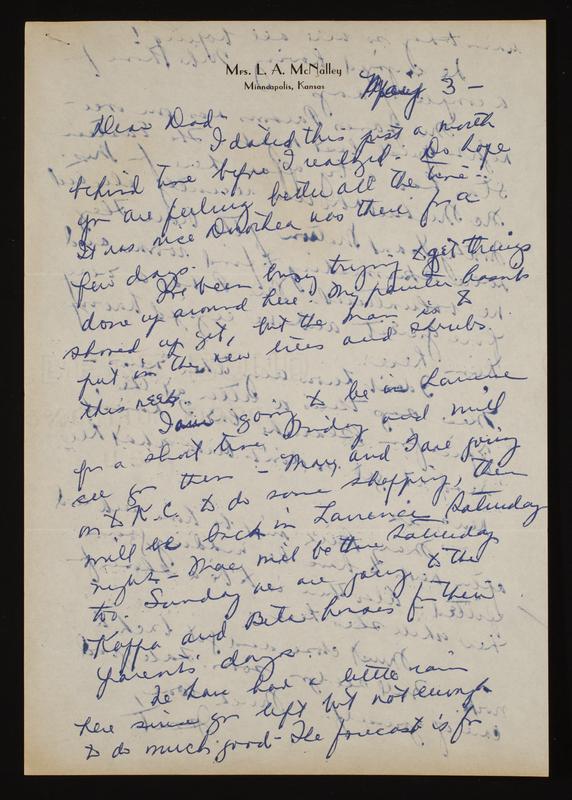 Mrs. L. A. McNalley
Minneapolis, Kansas
May 3 -
Dear Dad -
I dated this just a month
behind time before I realized - Do hope
you are feeling better all the time -
It was nice Dorothea was there for a
few days.
I've been busy trying to get things
done up around here. My painter hasn't
showed up yet, but the man is to
put in the new trees and shrubs
this week.
I am going to be in Lawrence
for a short time Friday and will
see you then - Mary and I are going
on to K.C. to do some shopping, then
will be back in Lawrence Saturday
night - Mac will be there Saturday
too. Sunday we are going to the
Kappa and Beta houses for their
parents' days
We have had a little rain
here since you left but not enough
to do much good - The forecast is for